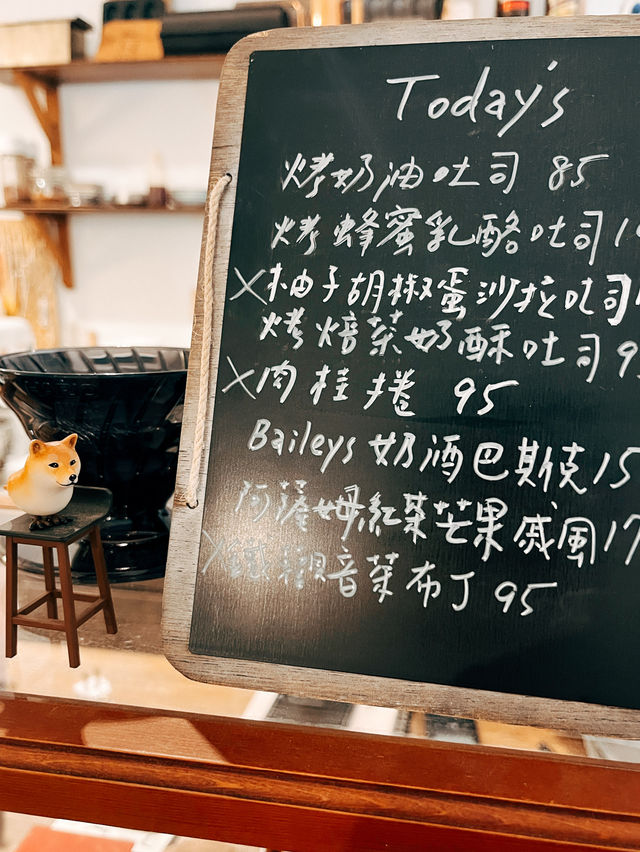 Today's
烤奶油吐司 85
烤蜂蜜乳酪吐司 1
X 柚子胡椒蛋沙拉吐司
烤焙茶奶酥吐司 9
X 肉桂捲 95
Baileys 奶酒巴斯克 15
阿薩姆紅茶芒果戚風 17
X 鐵觀音茶布丁 95